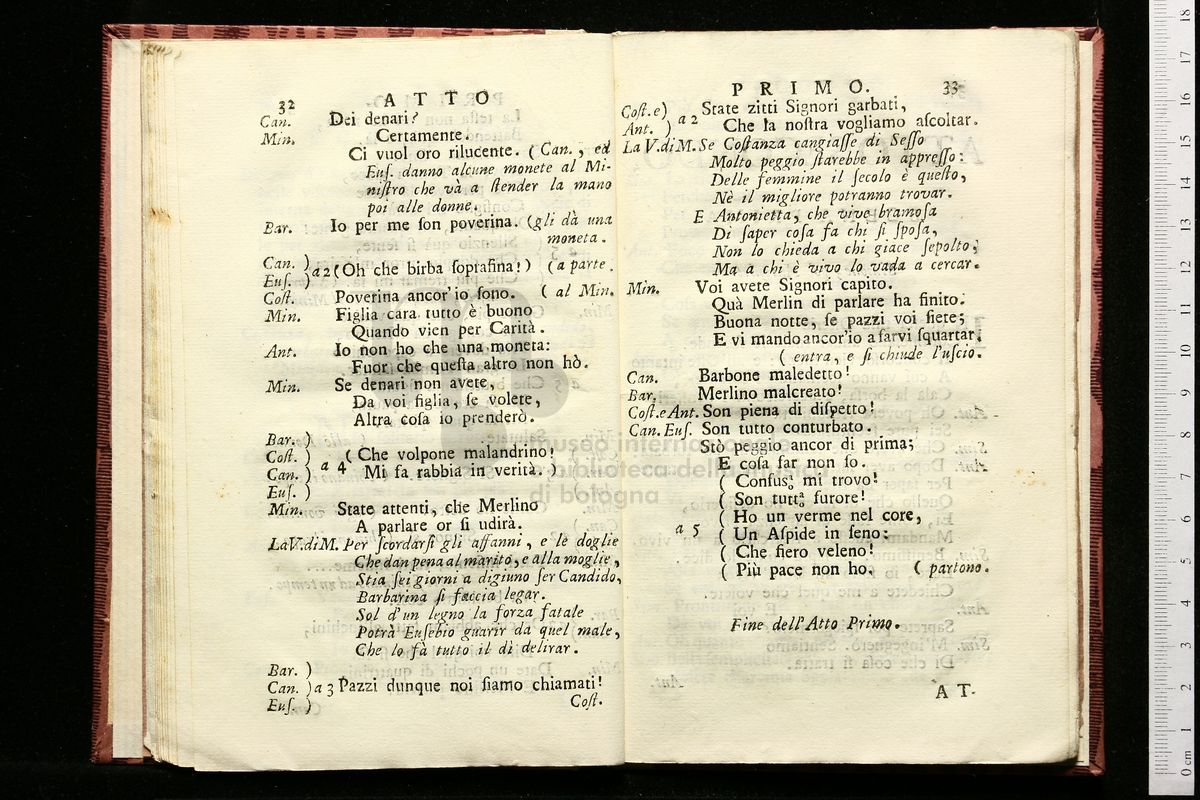 32 ATTO
Can. Dei denari?
Min. Certamente.
Ci vuol oro rilucente. (Can., ed
Euſ. danno alcune monete al Mi-
niſtro che và a ſtender la mano
poi alle donne.
Bar. Io per me ſon poverina. (gli dà una
moneta.
Can. )
a 2 (Oh che birba ſopraſina!) (a parte.
Euſ. )
Coſt. Poverina ancor' io ſono. (al Min.
Min. Figlia cara tutto è buono
Quando vien per Carità.
Ant. Io non ho che una moneta:
Fuor che queſta altro non hò.
Min. Se denari non avete,
Da voi figlia, ſe volete,
Altra coſa io prenderò.
Bar. )
Coſt. ) (Che volpone malandrino!
Can. ) a 4 Mi fa rabbia in verità.)
Euſ. )
Min. State attenti, che Merlino
A parlare or ſi udirà.
La V. di M. Per ſcordarſi gli affanni, e le doglie
Che dan pena al marito, e alla moglie,
Stia ſei giorni a digiuno ſer Candido,
Barbarina ſi faccia legar.
Sol d'un legno la forza fatale
Potrà Euſebio guarir da quel male,
Che lo fà tutto il di delirar.
Bar. )
Can. ) a 3 Pazzi dunque noi ſiamo chiamati!
Euſ. ) Coſt.
PRIMO. 33
Coſt. e) a 2 State zitti Signori garbati,
Ant. ) Che la noſtra vogliamo aſcoltar.
La V. di M. Se Coſtanza cangiaſſe di Seſſo
Molto peggio ſtarebbe in appreſſo:
Delle femmine il ſecolo è queſto,
Nè il migliore potranno trovar.
E Antonietta, che vive bramoſa
Di ſaper coſa fa chi ſi ſpoſa,
Non lo chieda a chi giace ſepolto;
Ma a chi è vivo lo vada a cercar.
Min. Voi avete Signori capito.
Quà Merlin di parlare ha finito.
Buona notte, ſe pazzi voi ſiete;
E vi mando ancor' io a farvi ſquartar.
(entra, e ſi chiude l'uſcio.
Can. Barbone maledetto!
Bar. Merlino malcreato!
Coſt. e Ant. Son piena di diſpetto!
Can. Euſ. Son tutto conturbato.
Stò peggio ancor di prima;
E coſa far non ſo.
( Confuſ mi trovo!
( Son tutt furore!
( Ho un verme nel core,
a 5 ( Un Aſpide in ſeno:
( Che fiero veleno!
( Più pace non ho. (partono.
Fine dell'Atto Primo.
AT-
museo internazionale
e biblioteca della musica
di bologna
0 cm 1 2 3 4 5 6 7 8 9 10 11 12 13 14 15 16 17 18